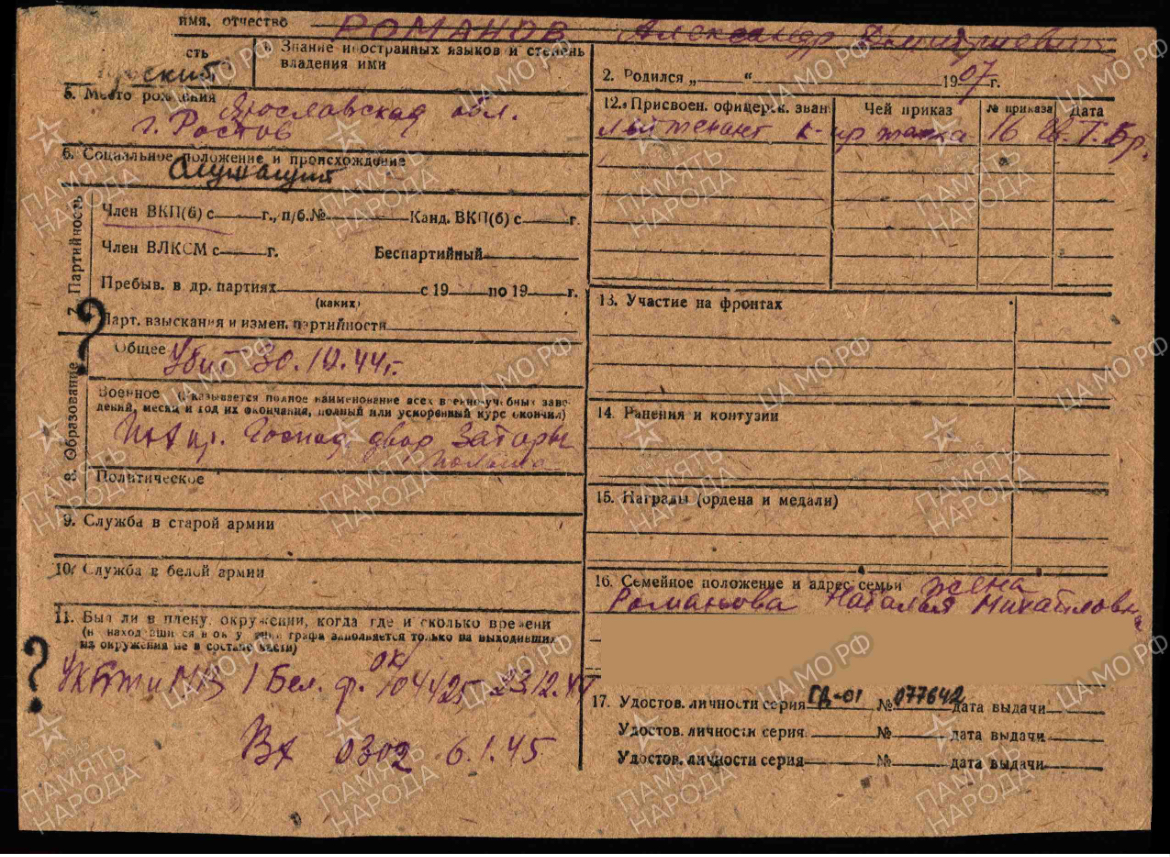 имя, отчество РОМАНОВ Александр Дмитриевич
сть
1. Знание иностранных языков и степень
владения ими
2. Родился „ “ 1907 г.
5. Место рождения Ярославская обл.
г. Ростов
12. Присвоен. офицерск. зван
Чей приказ
№ приказа
Дата
лейтенант к-ир танка 16 Тбр.
6. Социальное положение и происхождение
Служащий
7. Партийность
Член ВКП(б) с г., п/б.№ Канд. ВКП(б) с г.
Член ВЛКСМ с г. Беспартийный
Пребыв. в др. партиях с 19 по 19 г.
(каких)
Парт. взыскания и измен. партийности
?
8. Образование
Общее Убит 30.10.44 г.
Военное (указывается полное наименование всех военно-учебных заве-
дений, месяц и год их окончания, полный или ускоренный курс окончил)
Господ двор Заторы
Польша
Политическое
9. Служба в старой армии
10. Служба в белой армии
11. Был ли в плену, окружении, когда где и сколько времени
(в находившихся в окружении графа заполняется только на выходивших
из окружения не в составе части)
?
УКБТ и МВ 1 Бел. ф. 104425 23.12.44
Вх 0302 6.1.45
13. Участие на фронтах
14. Ранения и контузии
15. Награды (ордена и медали)
16. Семейное положение и адрес семьи жена
Романова Наталья Михайловн
17. Удостов. личности серия ГД-01 № 077642 дата выдачи
Удостов. личности серия № дата выдачи
Удостов. личности серия № дата выдачи
ПАМЯТЬ НАРОДА
ЦАМО РФ